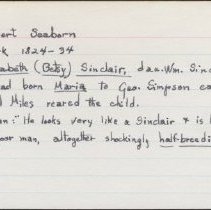 ert Seaborn
k 1824-34
abeth (Betsy) Sinclair, dau. Wm. Sinc
ad born Maria to Geo. Simpson ea
d Miles reared the child.
n: "He looks very like a Sinclair & is l
oor man, altogether shockingly half-breedi